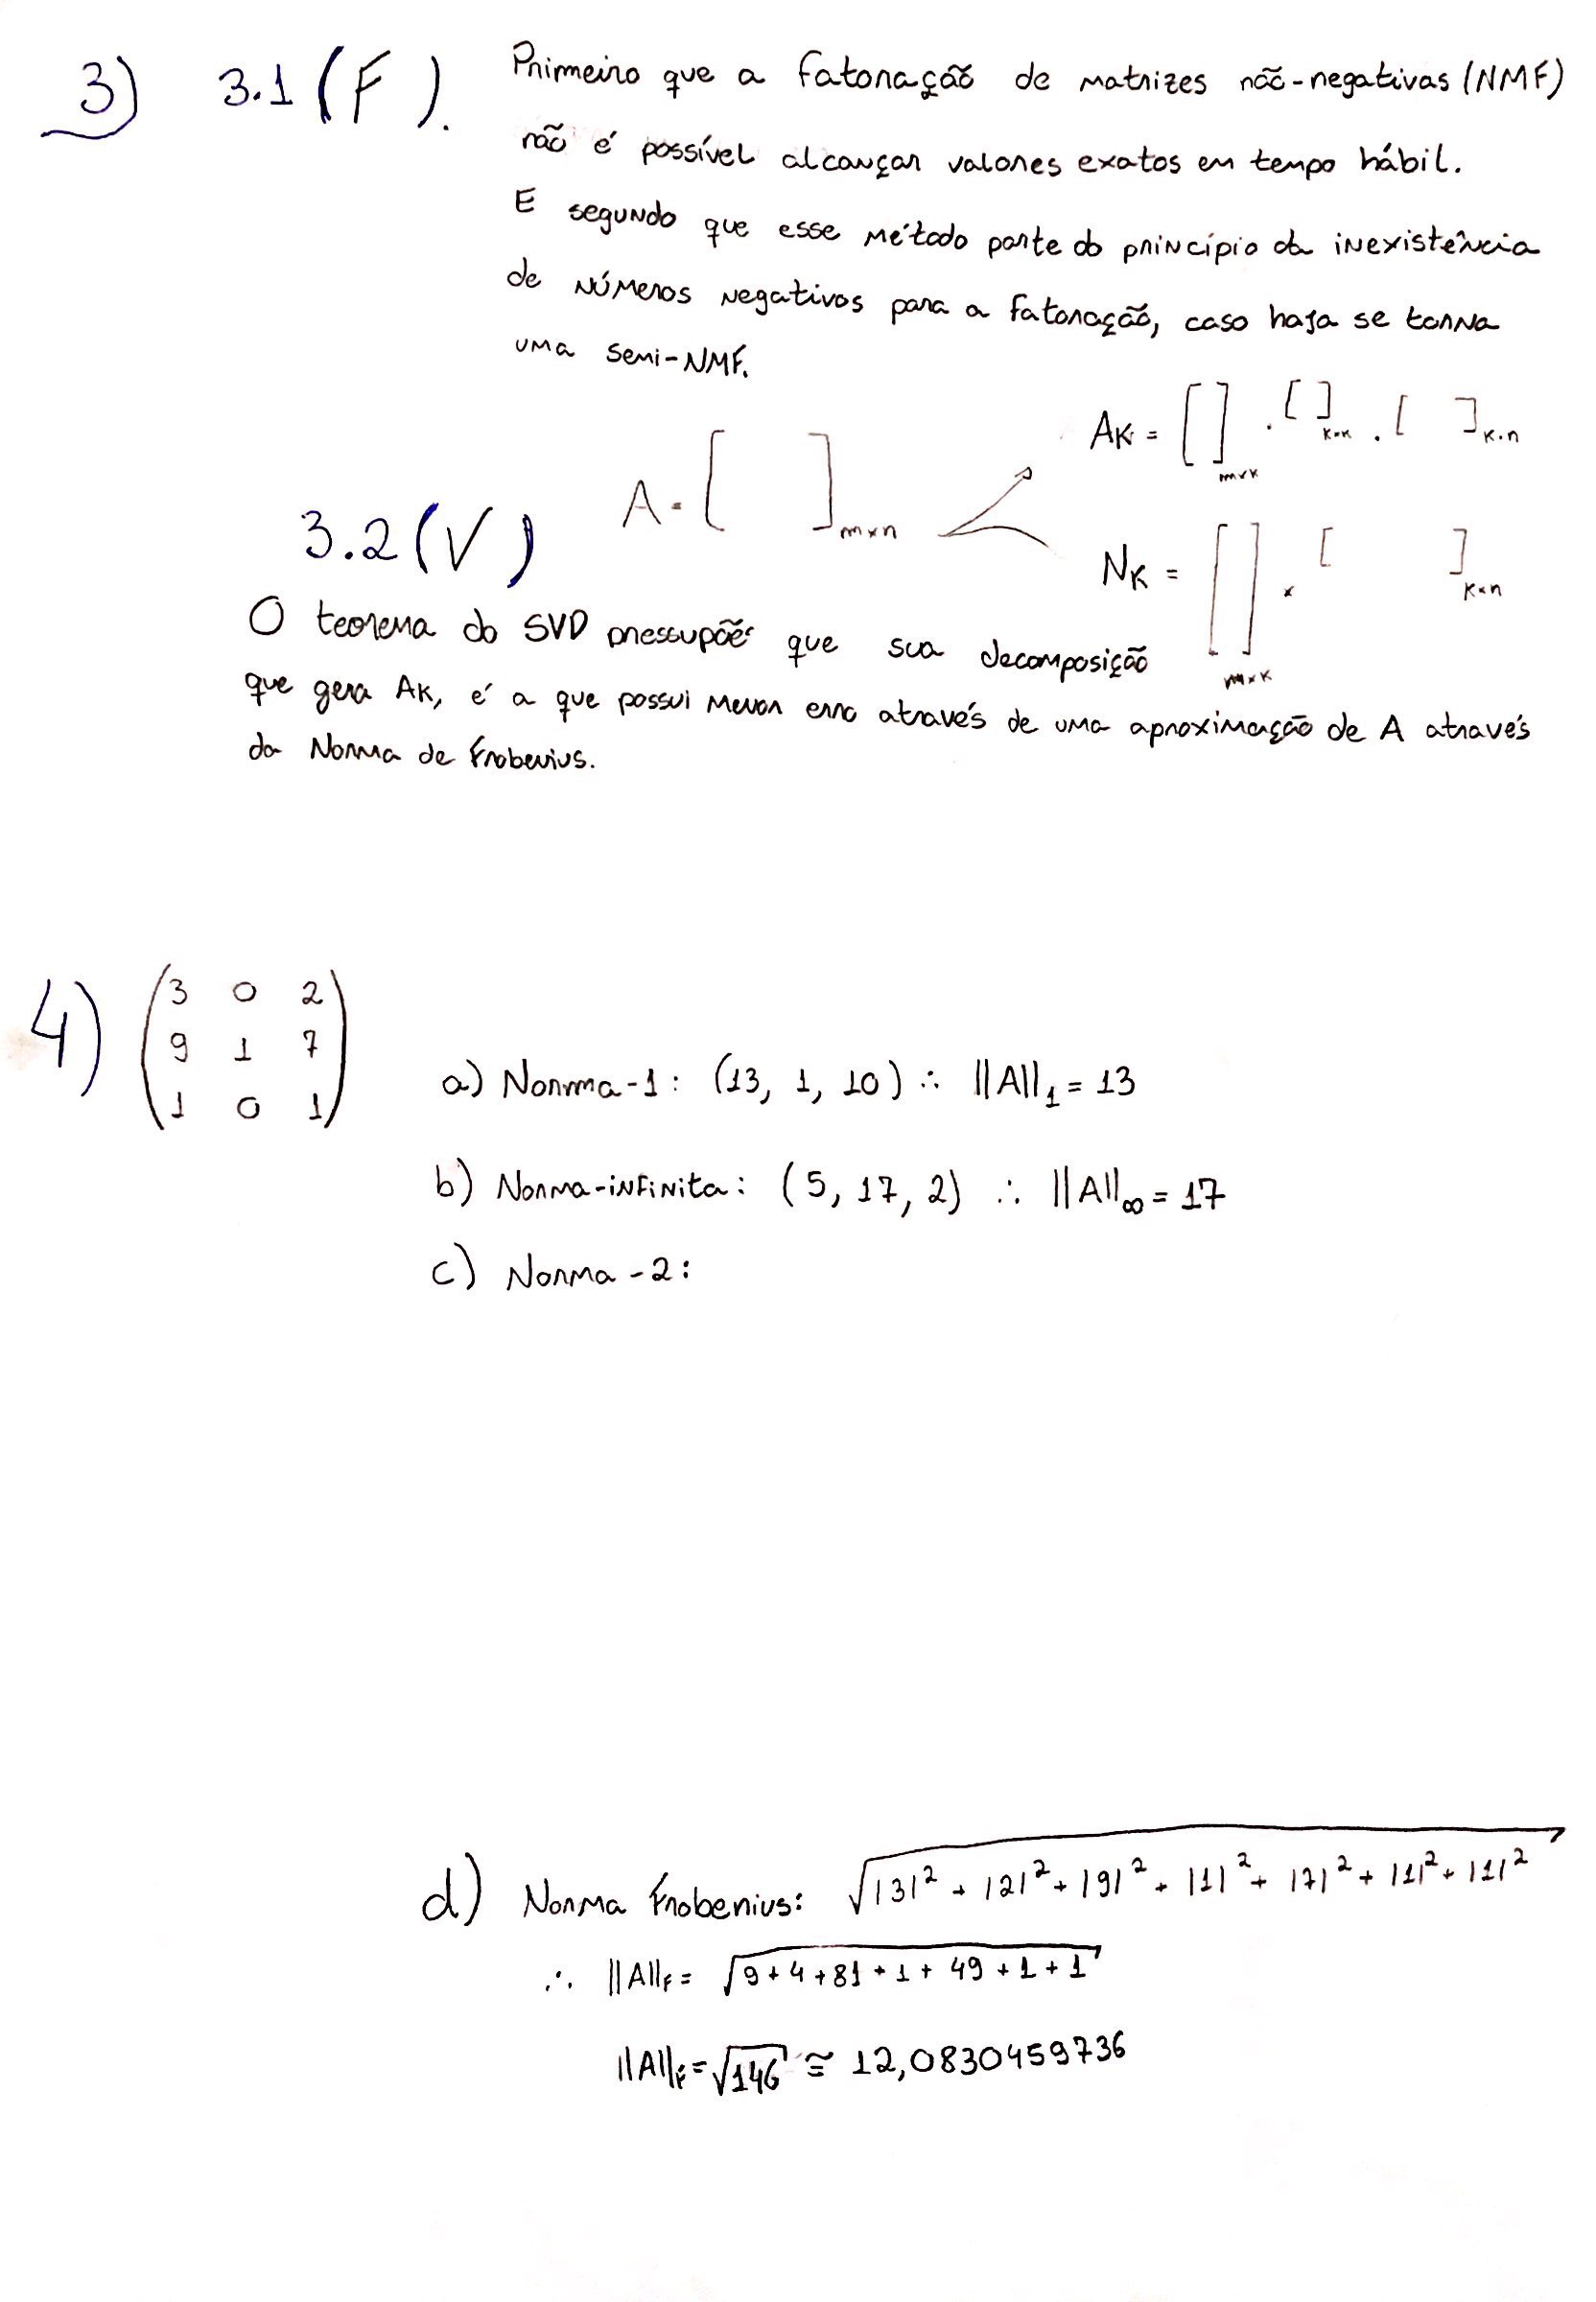 3) 3.1 (F). Primeiro que a fatoração de matrizes não-negativas (NMF)
não é possível alcançar valores exatos em tempo hábil.
E segundo que esse método parte do princípio da inexistência
de números negativos para a fatoração, caso haja se torna
uma semi-NMF.
A = [ ]m×n
AK = [ ]m×K . [ ]K×K . [ ]K.n
3.2 (V)
NK = [ ]m×K × [ ]K×n
O teorema do SVD pressupõe que sua decomposição
que gera AK, é a que possui menor erro através de uma aproximação de A através
da Norma de Frobenius.
4) (3 0 2
9 1 7
1 0 1)
a) Norma-1: (13, 1, 10) ∴ ||A||₁ = 13
b) Norma-infinita: (5, 17, 2) ∴ ||A||∞ = 17
c) Norma-2:
d) Norma Frobenius: √|3|² + |2|² + |9|² + |1|² + |7|² + |1|² + |1|²
∴ ||A||F = √9 + 4 + 81 + 1 + 49 + 1 + 1
||A||F = √146 ≅ 12,0830459736